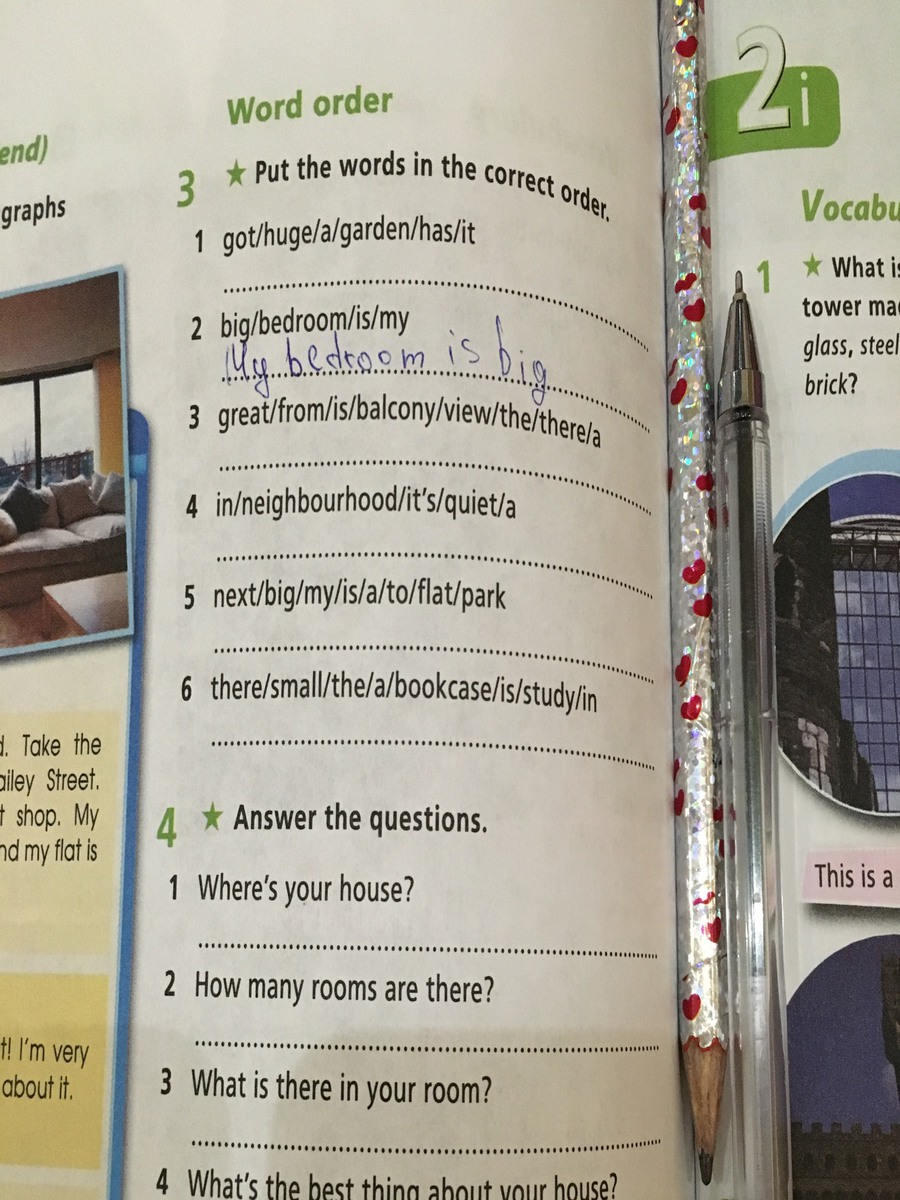 end)
graphs
d. Take the
ailey Street.
t shop. My
nd my flat is
t! I'm very
about it.
Word order
3 ★ Put the words in the correct order.
1 got/huge/a/garden/has/it
2 big/bedroom/is/my
My bedroom is big
3 great/from/is/balcony/view/the/there/a
4 in/neighbourhood/it's/quiet/a
5 next/big/my/is/a/to/flat/park
6 there/small/the/a/bookcase/is/study/in
4 ★ Answer the questions.
1 Where's your house?
2 How many rooms are there?
3 What is there in your room?
4 What's the best thing about your house?
2i
Vocabu
1 ★ What is
tower mad
glass, steel
brick?
This is a